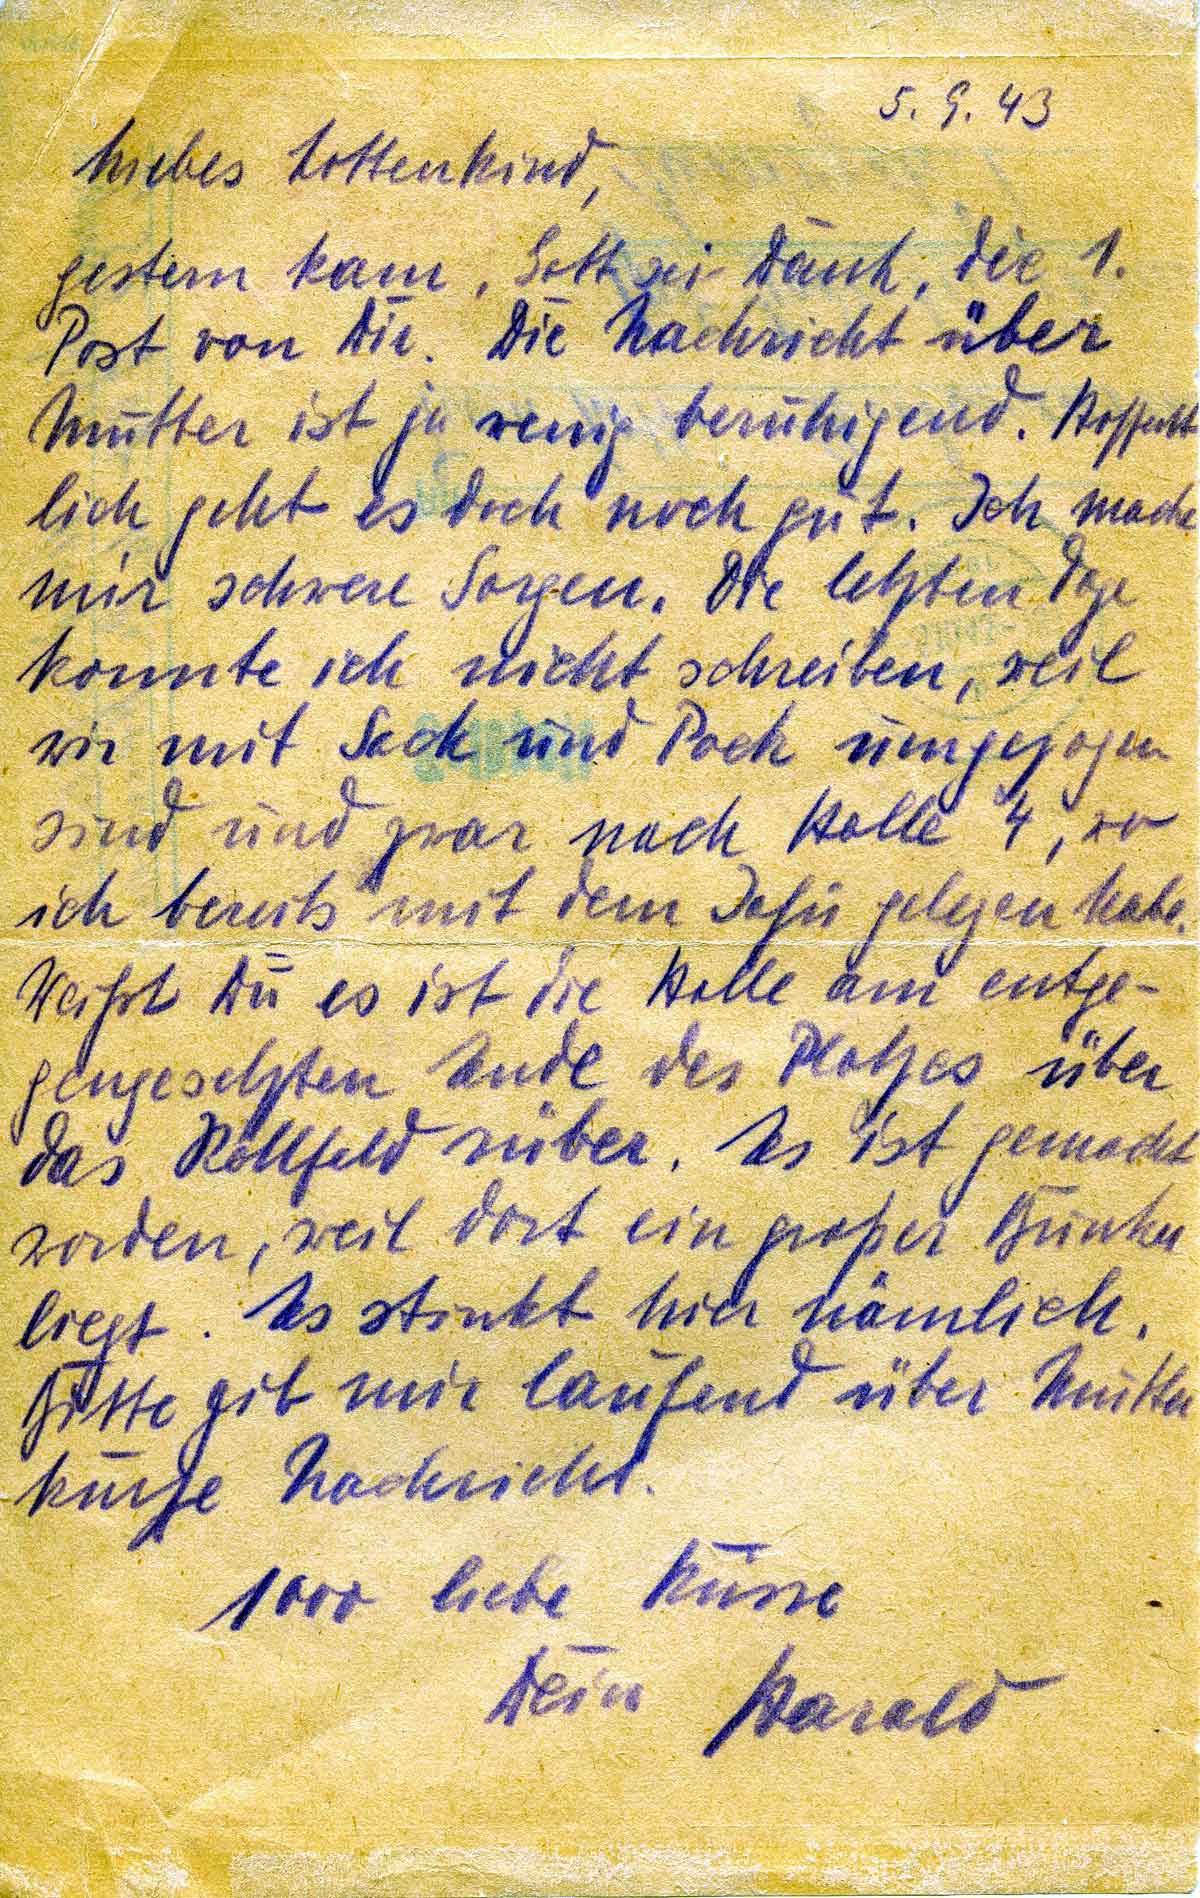 5. 9. 43
Liebes Lottenkind,
gestern kam, Gott sei Dank, die 1.
Post von Dir. Die Nachricht über
Mutter ist ja wenig beruhigend. Hoffent
lich geht es doch noch gut. Ich mache
mir schwere Sorgen. Die letzten Tage
konnte ich nicht schreiben, weil
wir mit Sack und Pack umgezogen
sind und zwar nach Halle 4, wo
ich bereits mit dem Jafü gelegen habe.
Weißt Du es ist die Halle am entge-
gengesetzten Ende des Platzes über
das Rollfeld rüber. Es ist gemacht
worden, weil dort ein großer Bunker
liegt. Es stinkt hier nämlich.
Bitte gib mir laufend über Mutter
kurze Nachricht.
1000 liebe Küsse
Dein Harald